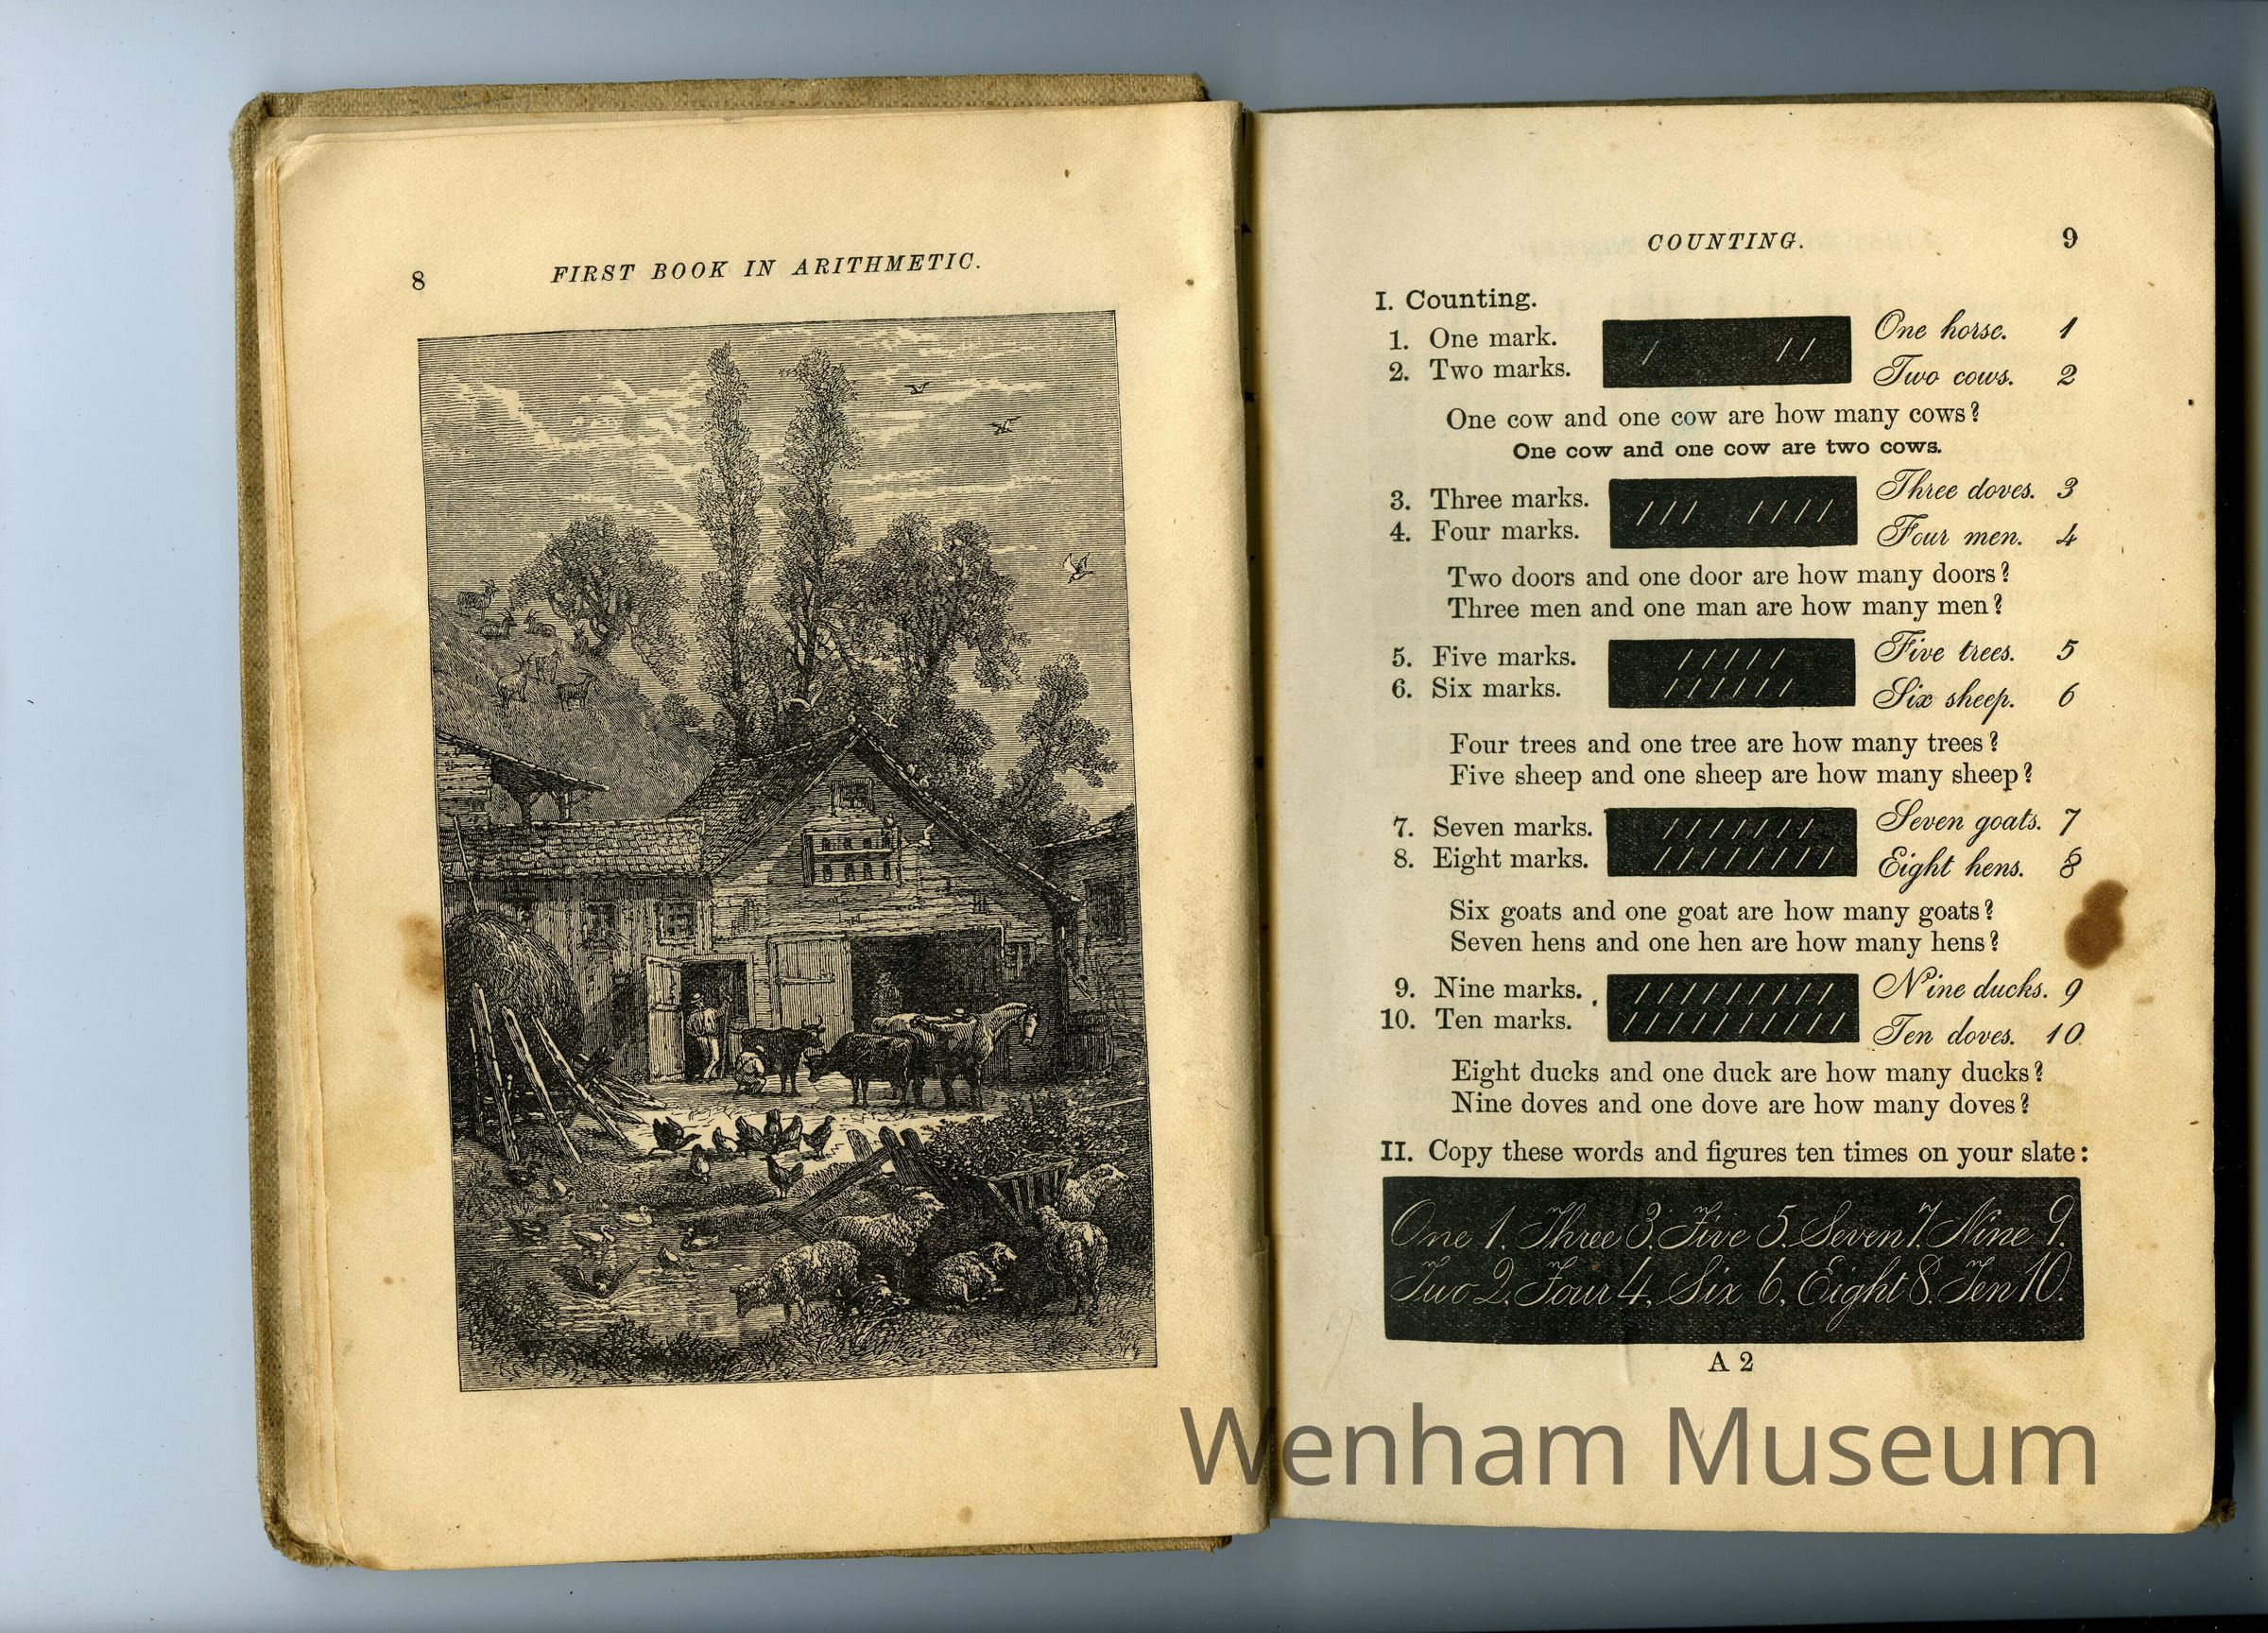 8 FIRST BOOK IN ARITHMETIC.
COUNTING. 9
I. Counting.
1. One mark. One horse. 1
2. Two marks. Two cows. 2
One cow and one cow are how many cows?
One cow and one cow are two cows.
3. Three marks. Three doves. 3
4. Four marks. Four men. 4
Two doors and one door are how many doors?
Three men and one man are how many men?
5. Five marks. Five trees. 5
6. Six marks. Six sheep. 6
Four trees and one tree are how many trees?
Five sheep and one sheep are how many sheep?
7. Seven marks. Seven goats. 7
8. Eight marks. Eight hens. 8
Six goats and one goat are how many goats?
Seven hens and one hen are how many hens?
9. Nine marks. Nine ducks. 9
10. Ten marks. Ten doves. 10
Eight ducks and one duck are how many ducks?
Nine doves and one dove are how many doves?
II. Copy these words and figures ten times on your slate:
One 1. Three 3. Five 5. Seven 7. Nine 9.
Two 2. Four 4. Six 6. Eight 8. Ten 10.
A 2
Wenham Museum